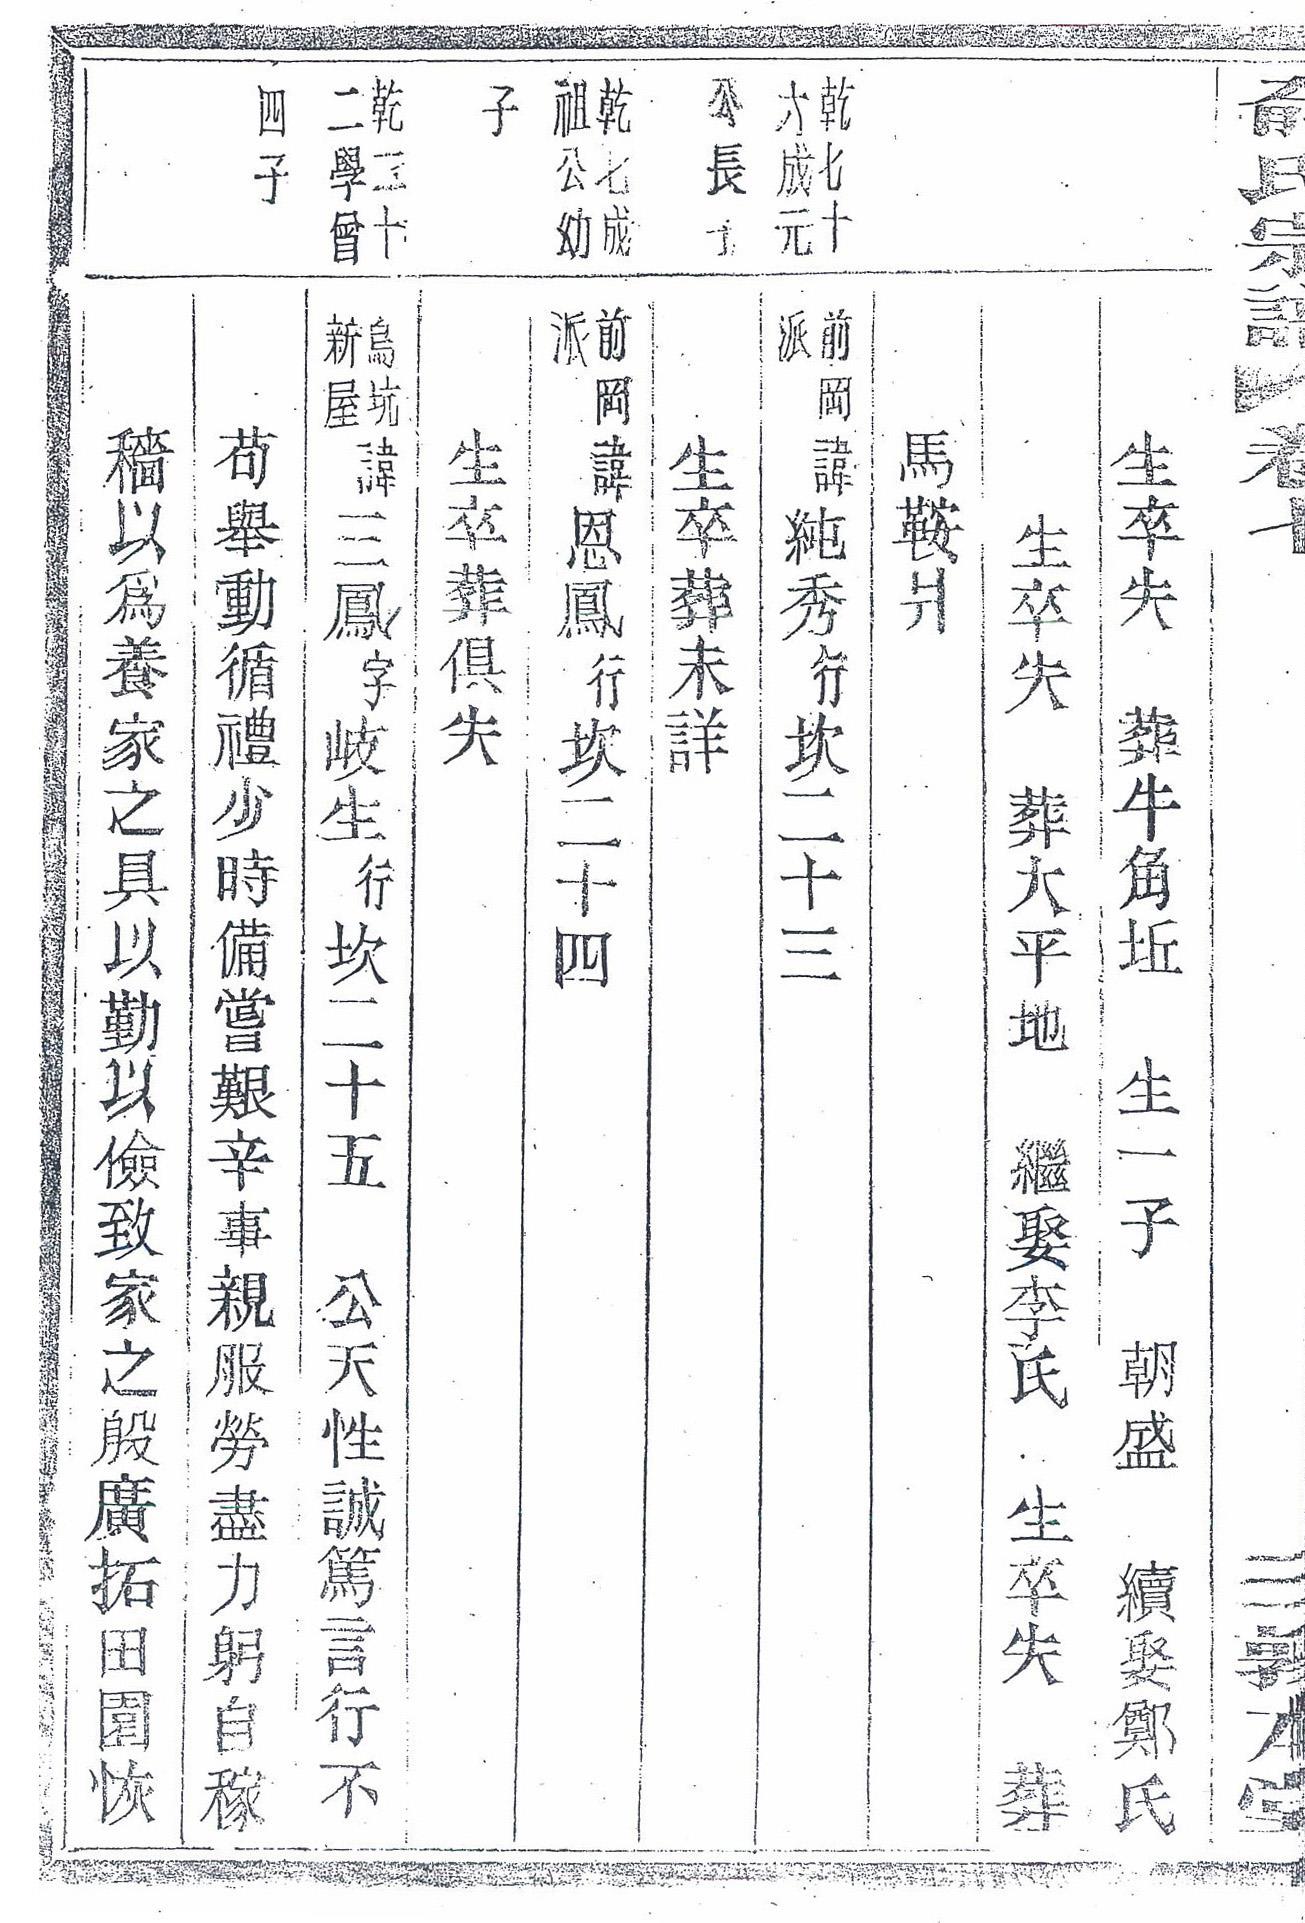 氏宗譜 卷十
生卒失 葬牛角坵 生一子 朝盛 續娶鄭氏
生卒失 葬大平地 繼娶李氏 生卒失 葬
馬鞍爿
乾七十
六成元
公長子
前岡
派
諱純秀行坎二十三
生卒葬未詳
乾七成
祖公幼
子
前岡
派
諱恩鳳行坎二十四
生卒葬俱失
乾三十
二學曾
四子
烏坑
新屋
諱三鳳字岐生行坎二十五 公天性誠篤言行不
苟舉動循禮少時備嘗艱辛事親服勞盡力躬自稼
穡以爲養家之具以勤以儉致家之殷廣拓田園恢